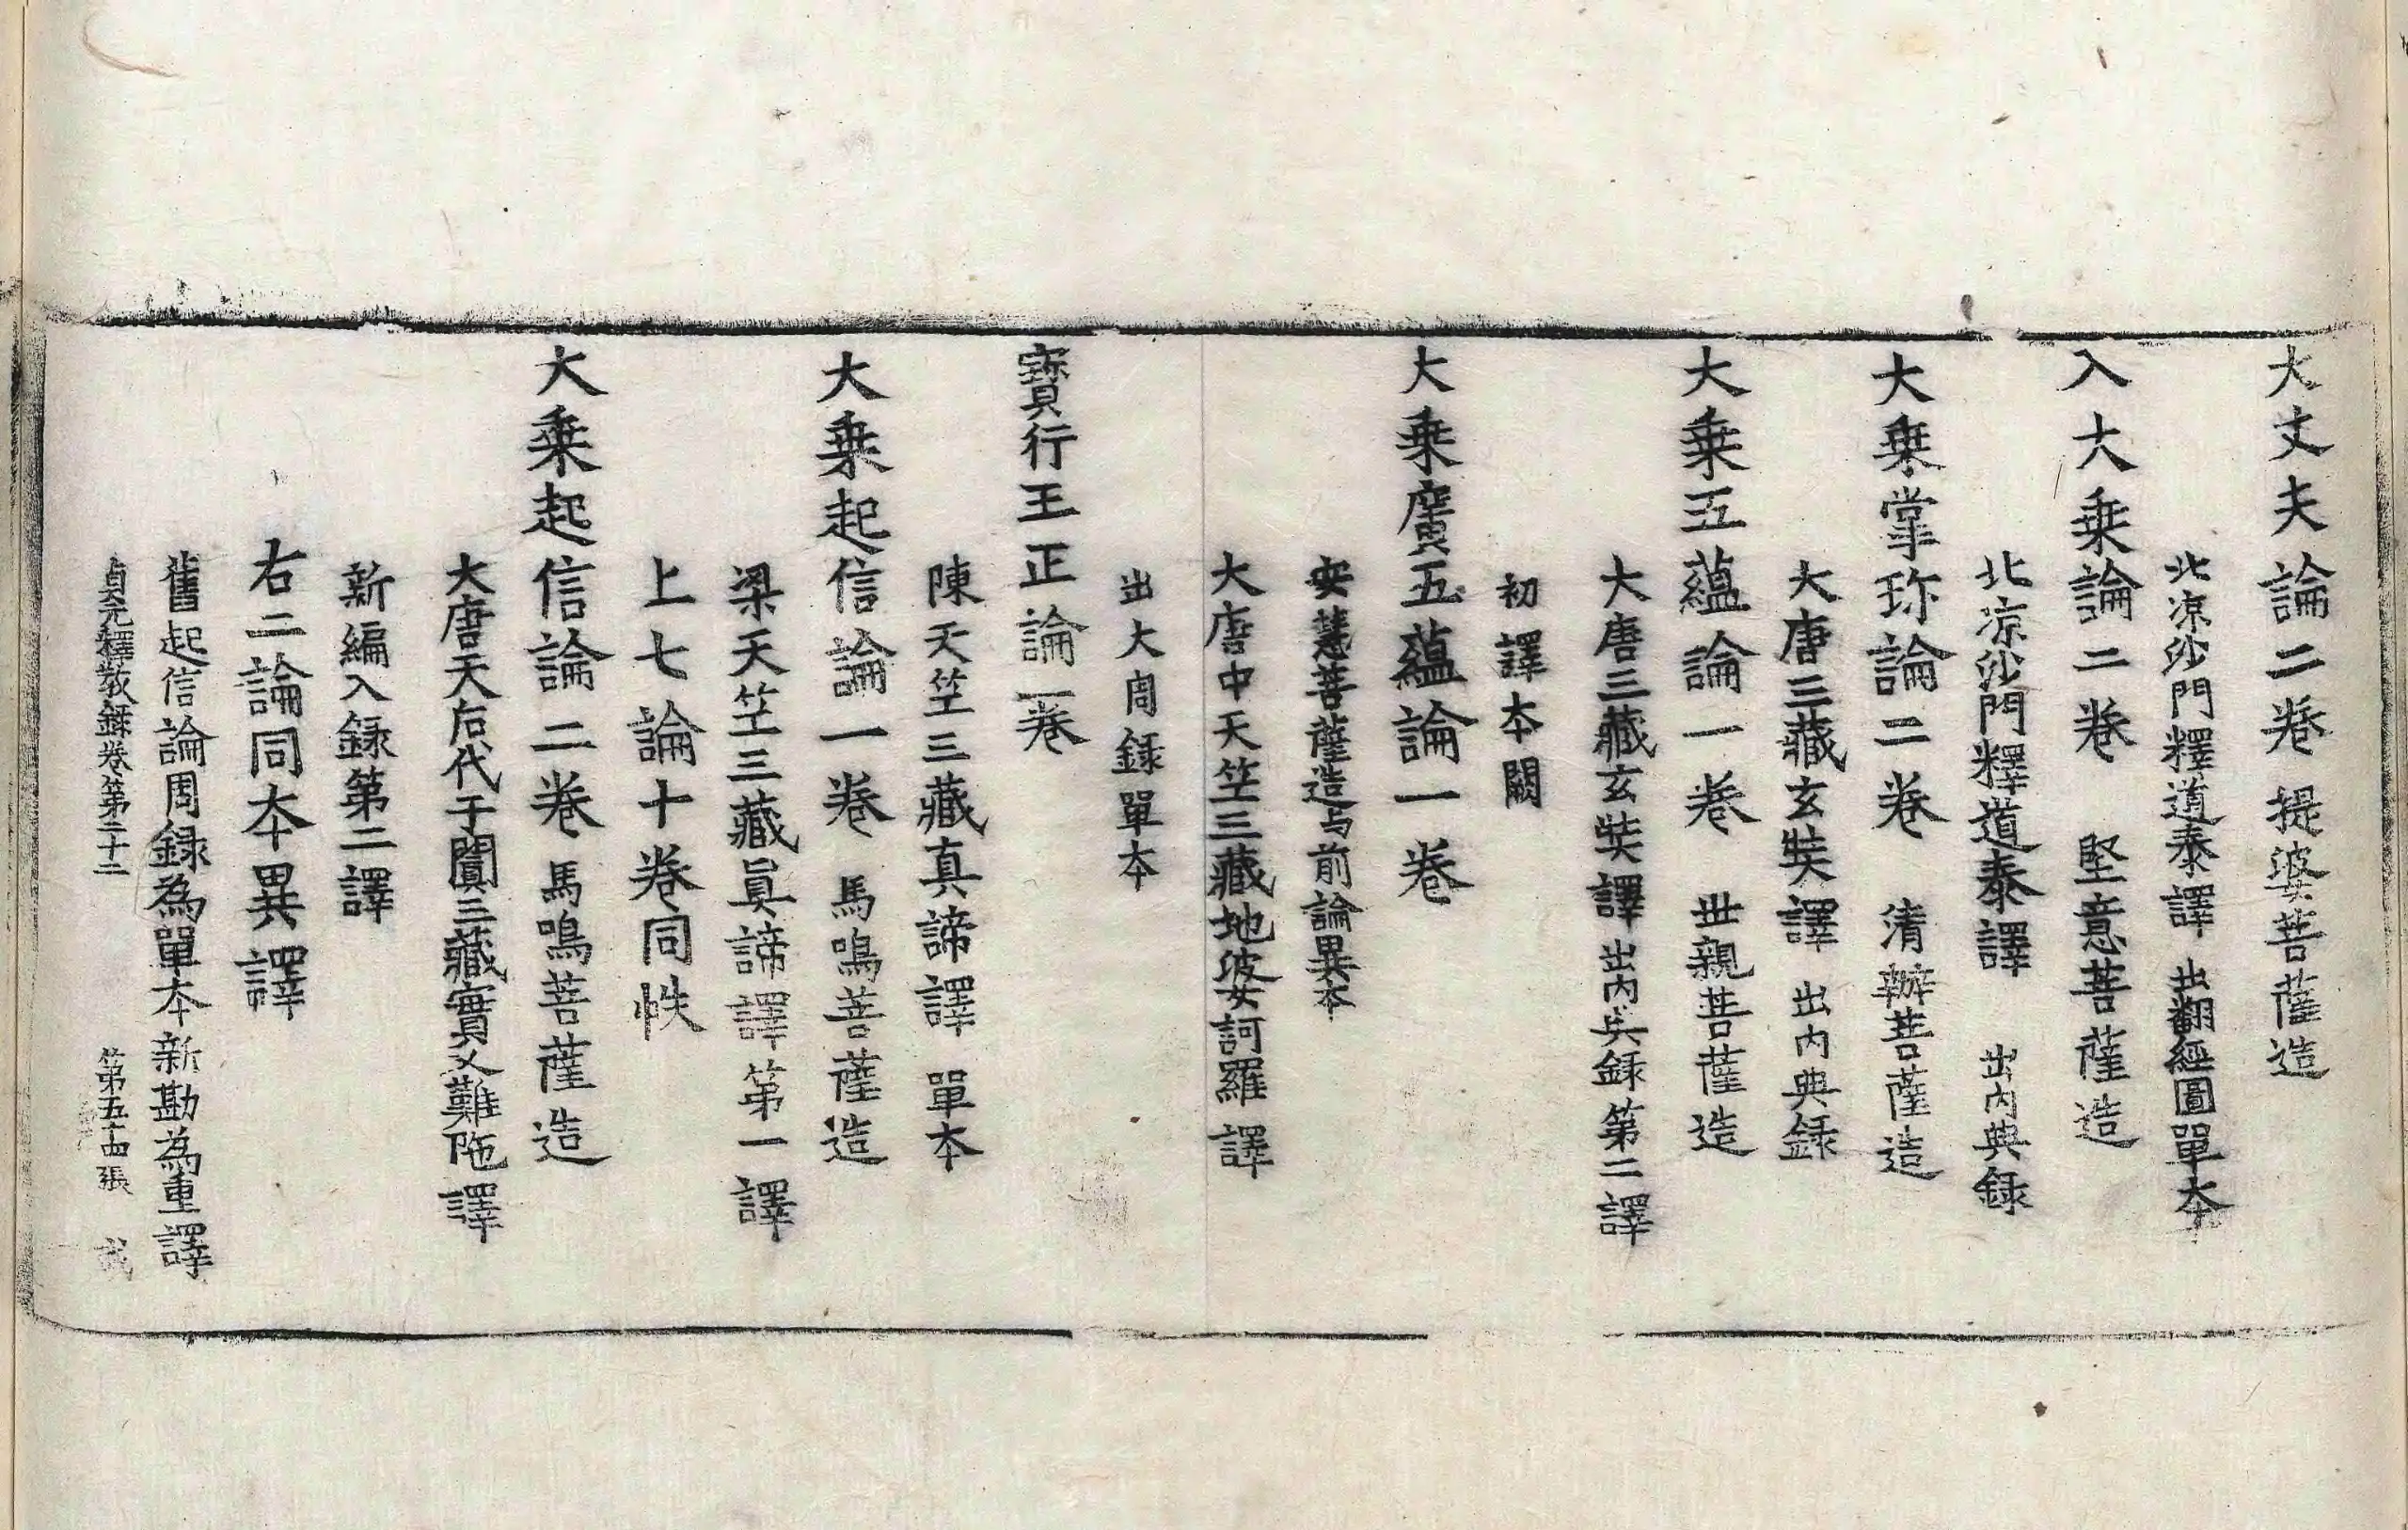 大丈夫論二卷 提婆菩薩造
北凉沙門釋道泰譯 出翻經圖單本
入大乗論二卷 堅意菩薩造
北凉沙門釋道泰譯 出内典録
大乗掌珎論二卷 清辯菩薩造
大唐三藏玄奘譯 出内典録
大乗五蘊論一卷 世親菩薩造
大唐三藏玄奘譯 出内典録第二譯
初譯本闕
大乗廣五蘊論一卷
安慧菩薩造与前論異本
大唐中天竺三藏地婆訶羅譯
出大周録單本
寶行王正論一卷
陳天竺三藏真諦譯 單本
大乗起信論一卷 馬鳴菩薩造
梁天竺三藏眞諦譯第一譯
上七論十卷同帙
大乗起信論二卷 馬鳴菩薩造
大唐天后代于闐三藏實叉難陁譯
新編入録第二譯
右二論同本異譯
舊起信論周録為單本新勘為重譯
貞元釋教錄卷第二十二 第五十四張